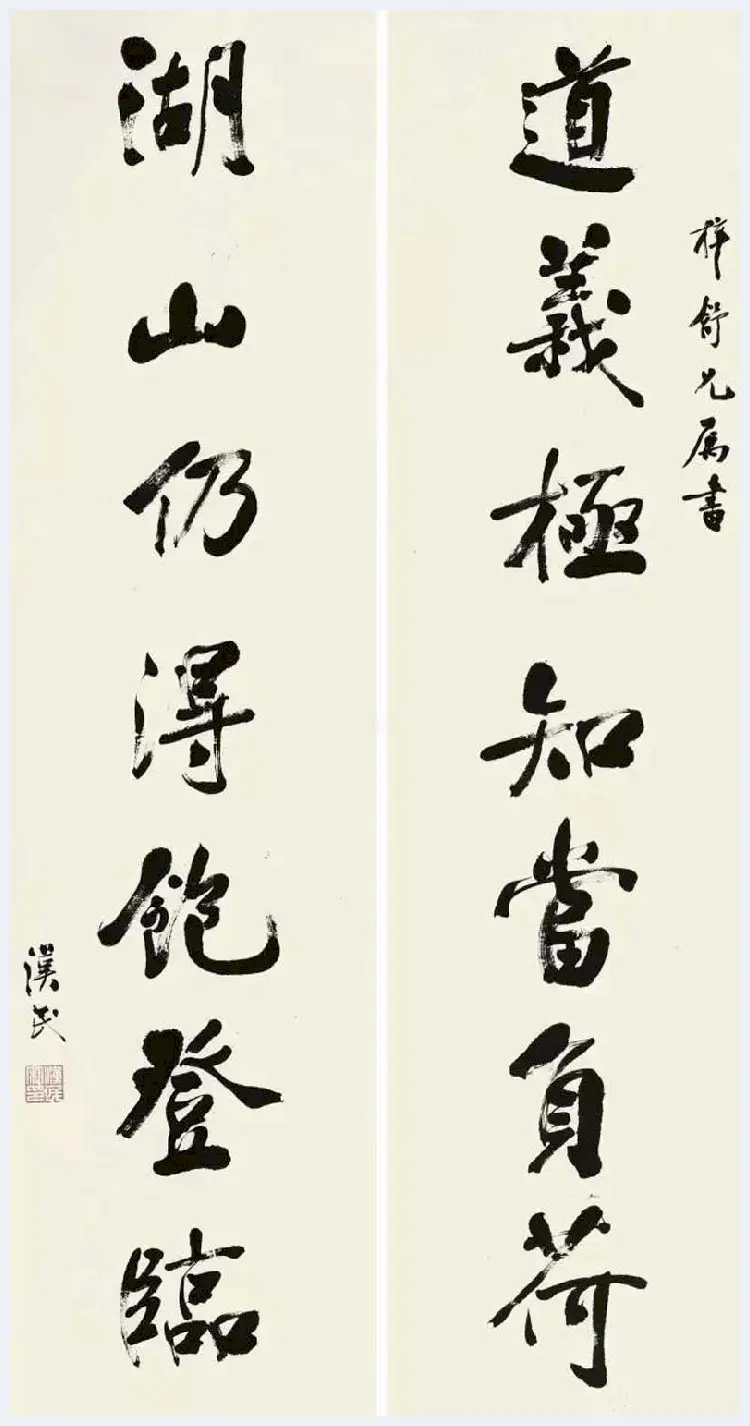 道義極知當負荷
梓舒兄属書
湖山仍得飽登臨
漢民